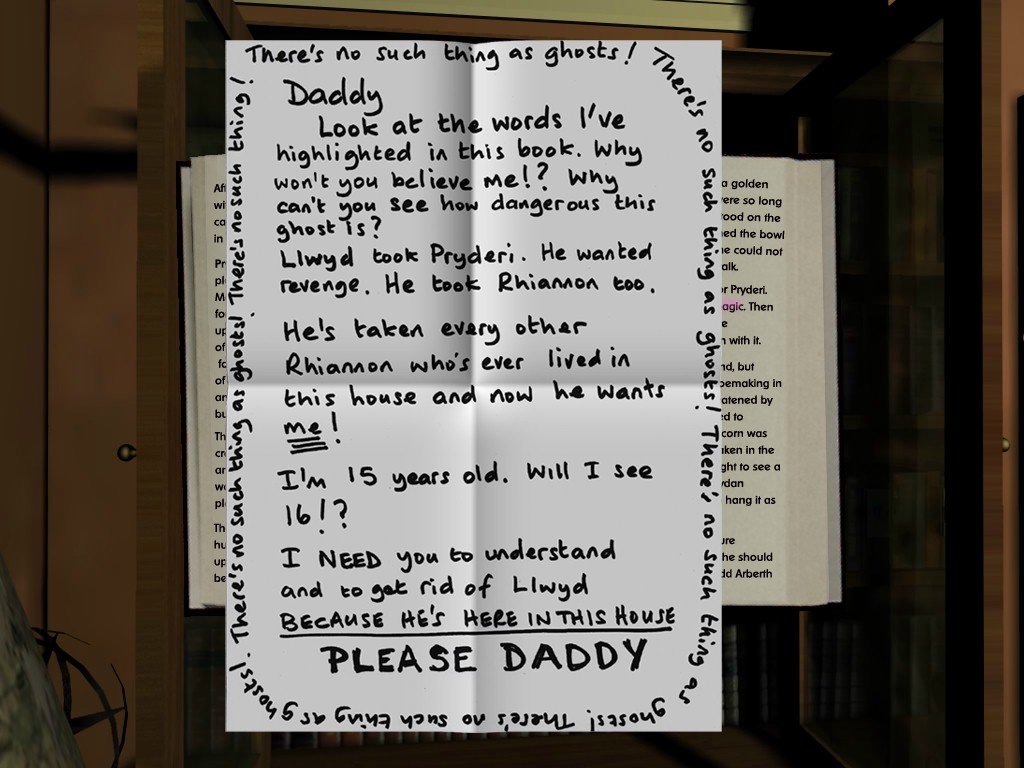 There's no such thing as ghosts! There's no such thing as ghosts! There's no such thing as ghosts! There's no such thing as ghosts! There's no such thing as ghosts! There's no such thing!
Daddy
Look at the words I've
highlighted in this book. Why
won't you believe me!? Why
can't you see how dangerous this
ghost is?
Llwyd took Pryderi. He wanted
revenge. He took Rhiannon too.
He's taken every other
Rhiannon who's ever lived in
this house and now he wants
me!
I'm 15 years old. Will I see
16!?
I NEED you to understand
and to get rid of Llwyd
BECAUSE HE'S HERE IN THIS HOUSE
PLEASE DADDY
a golden
so long
on the
the bowl
could not
Pryderi.
Then
with it.
but
in
by
to
corn was
in the
to see a
hang it as
he should
Arberth